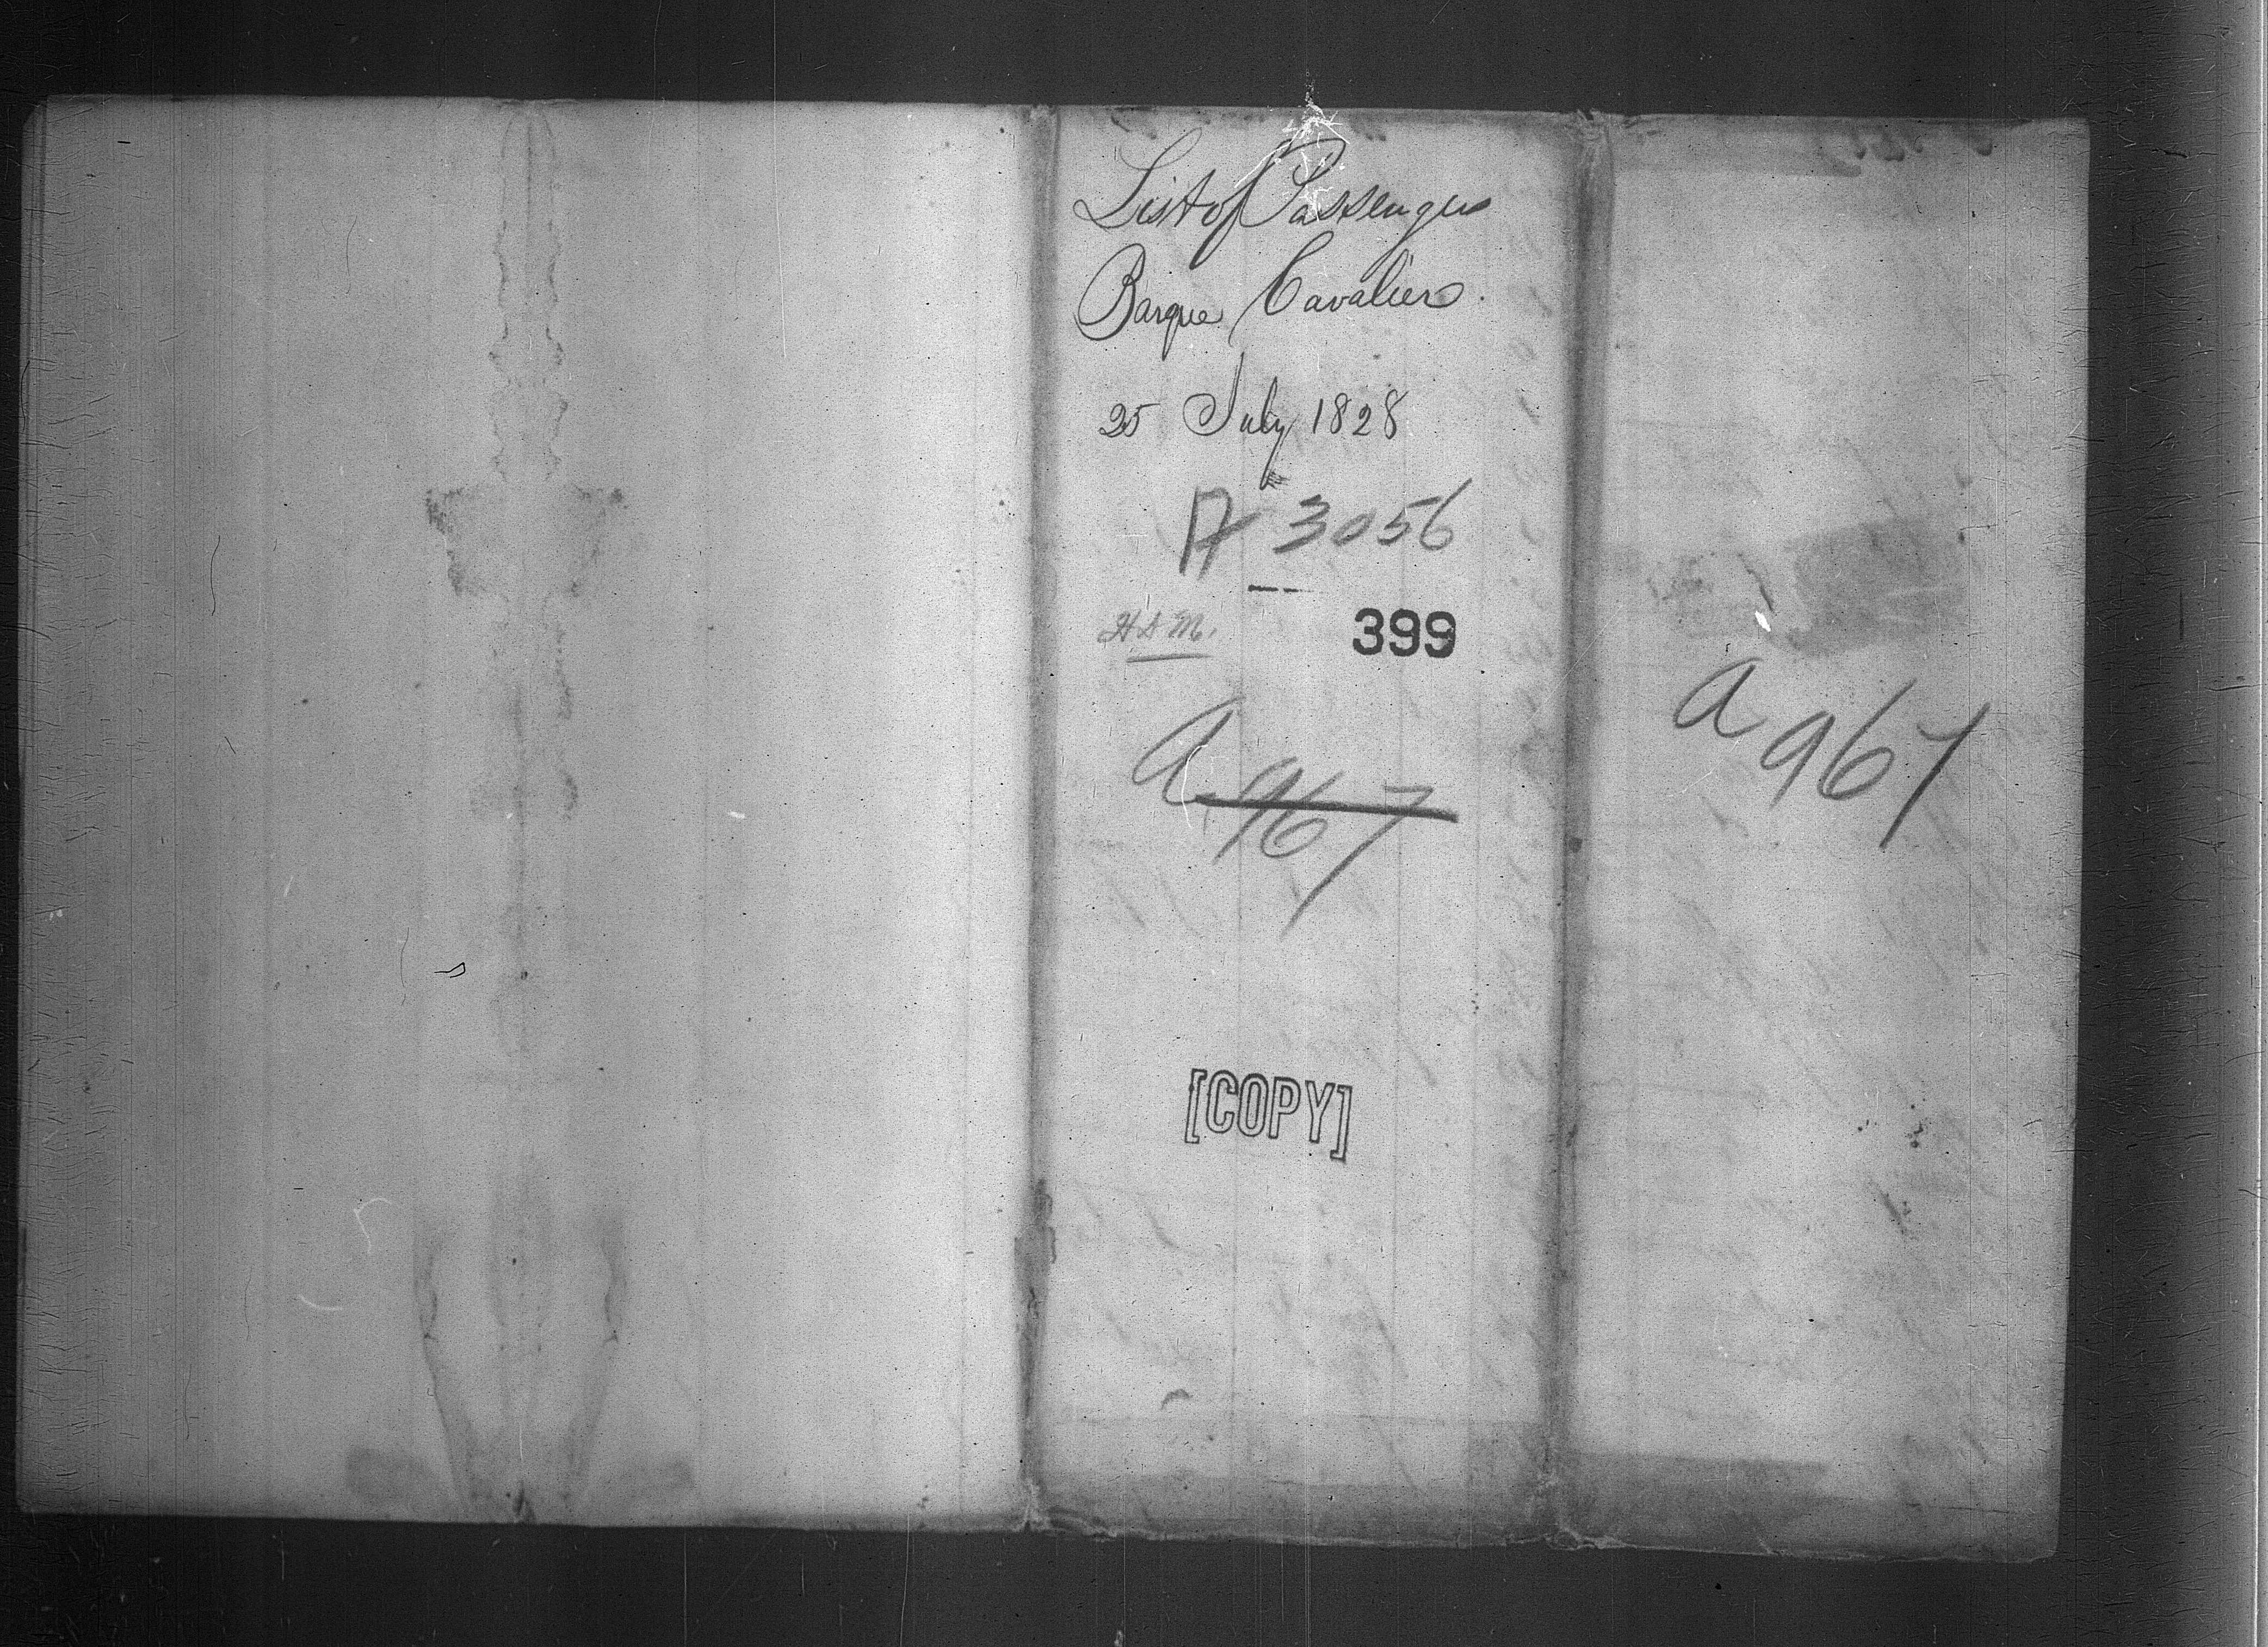 List of Passengers
Barque Cavalier
25 July 1828
A 3056
H.S.M. 399
A 967
[COPY]
a 967